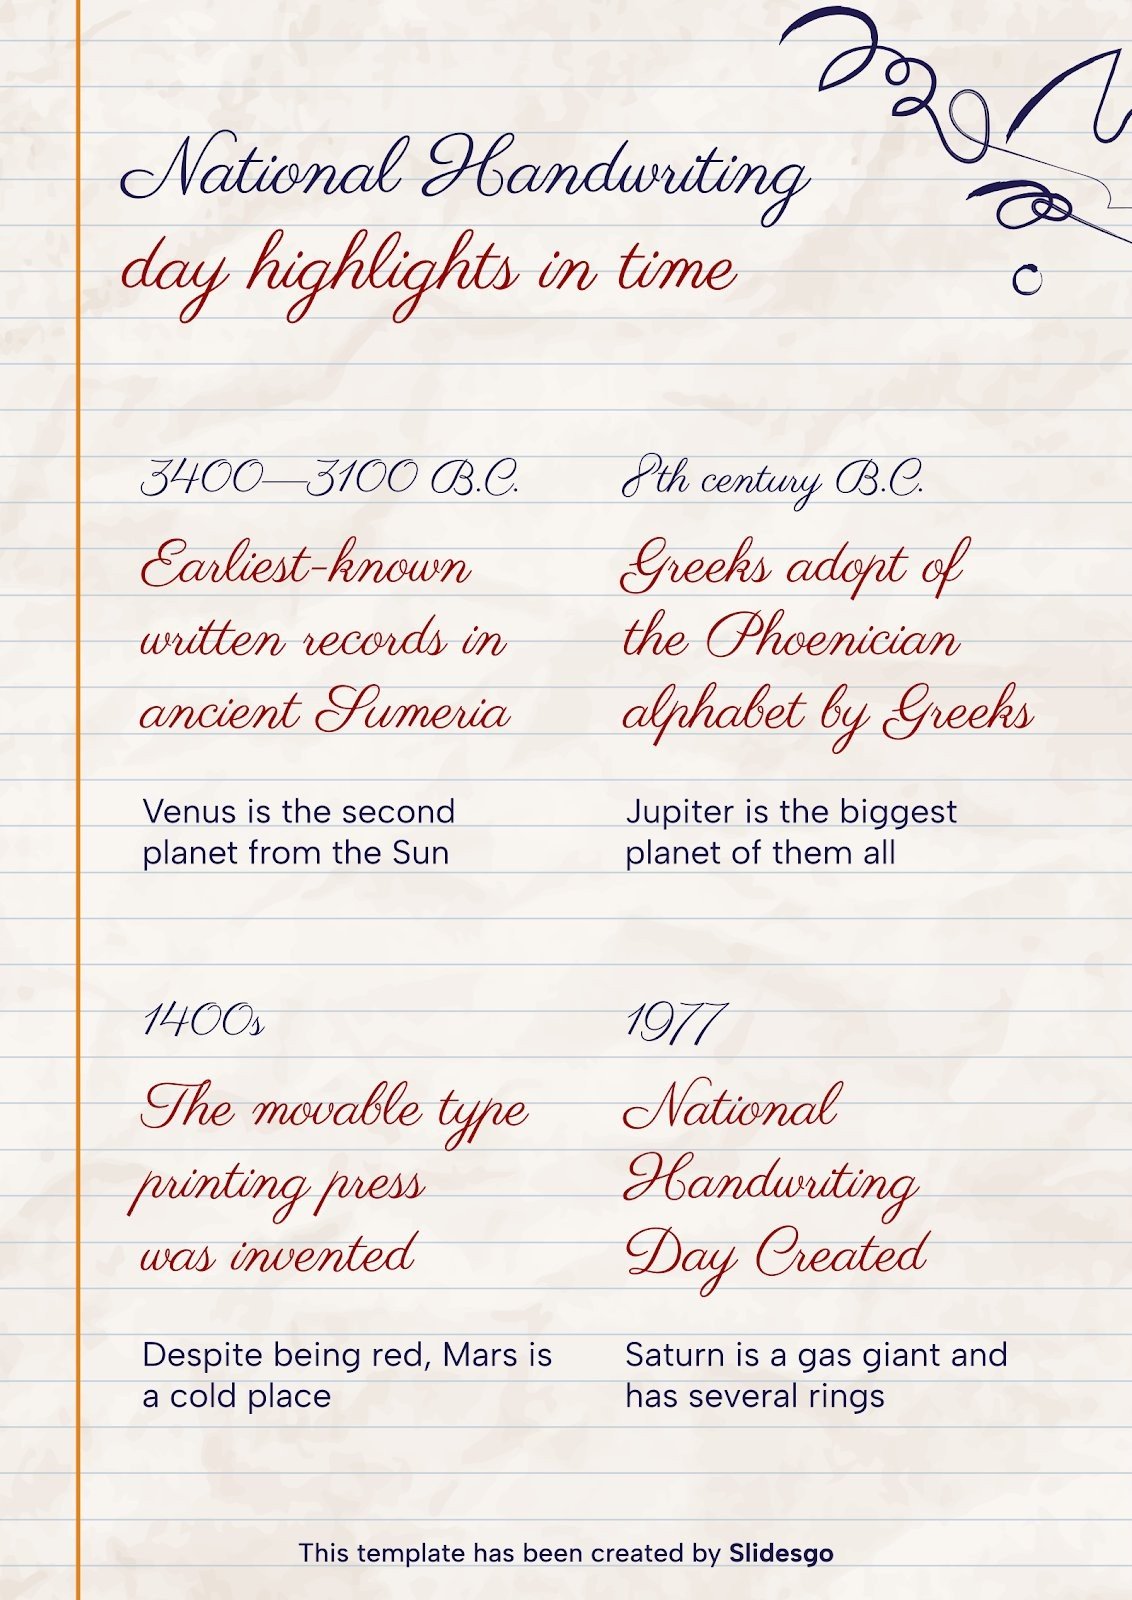 National Handwriting
day highlights in time
3400—3100 B.C.
Earliest-known
written records in
ancient Sumeria
Venus is the second
planet from the Sun
8th century B.C.
Greeks adopt of
the Phoenician
alphabet by Greeks
Jupiter is the biggest
planet of them all
1400s
The movable type
printing press
was invented
Despite being red, Mars is
a cold place
1977
National
Handwriting
Day Created
Saturn is a gas giant and
has several rings
This template has been created by Slidesgo